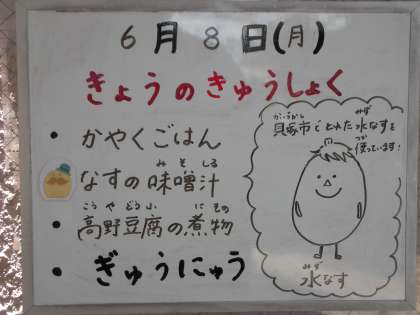 6月8日(月)
きょうのきゅうしょく
・かやくごはん
なすの味噌汁
みそしる
・高野豆腐の煮物
こうやどうふ にもの
・ぎゅうにゅう
かいづかし みず
貝塚市でとれた水なすを
つか
使っています!
みず
水なす